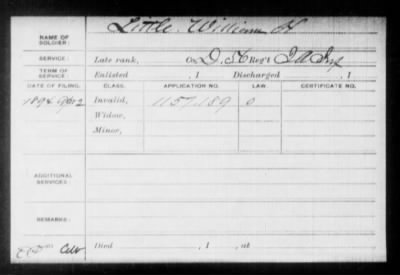 NAME OF SOLDIER: Little, William H
SERVICE: Late rank, Co. D, 56 Reg't Ia Inf
TERM OF SERVICE: Enlisted , 1 Discharged , 1
DATE OF FILING. CLASS. APPLICATION NO. LAW. CERTIFICATE NO.
1894 Invalid, 1157.189 0
Widow,
Minor,
ADDITIONAL SERVICES:
REMARKS:
Died , 1 , at